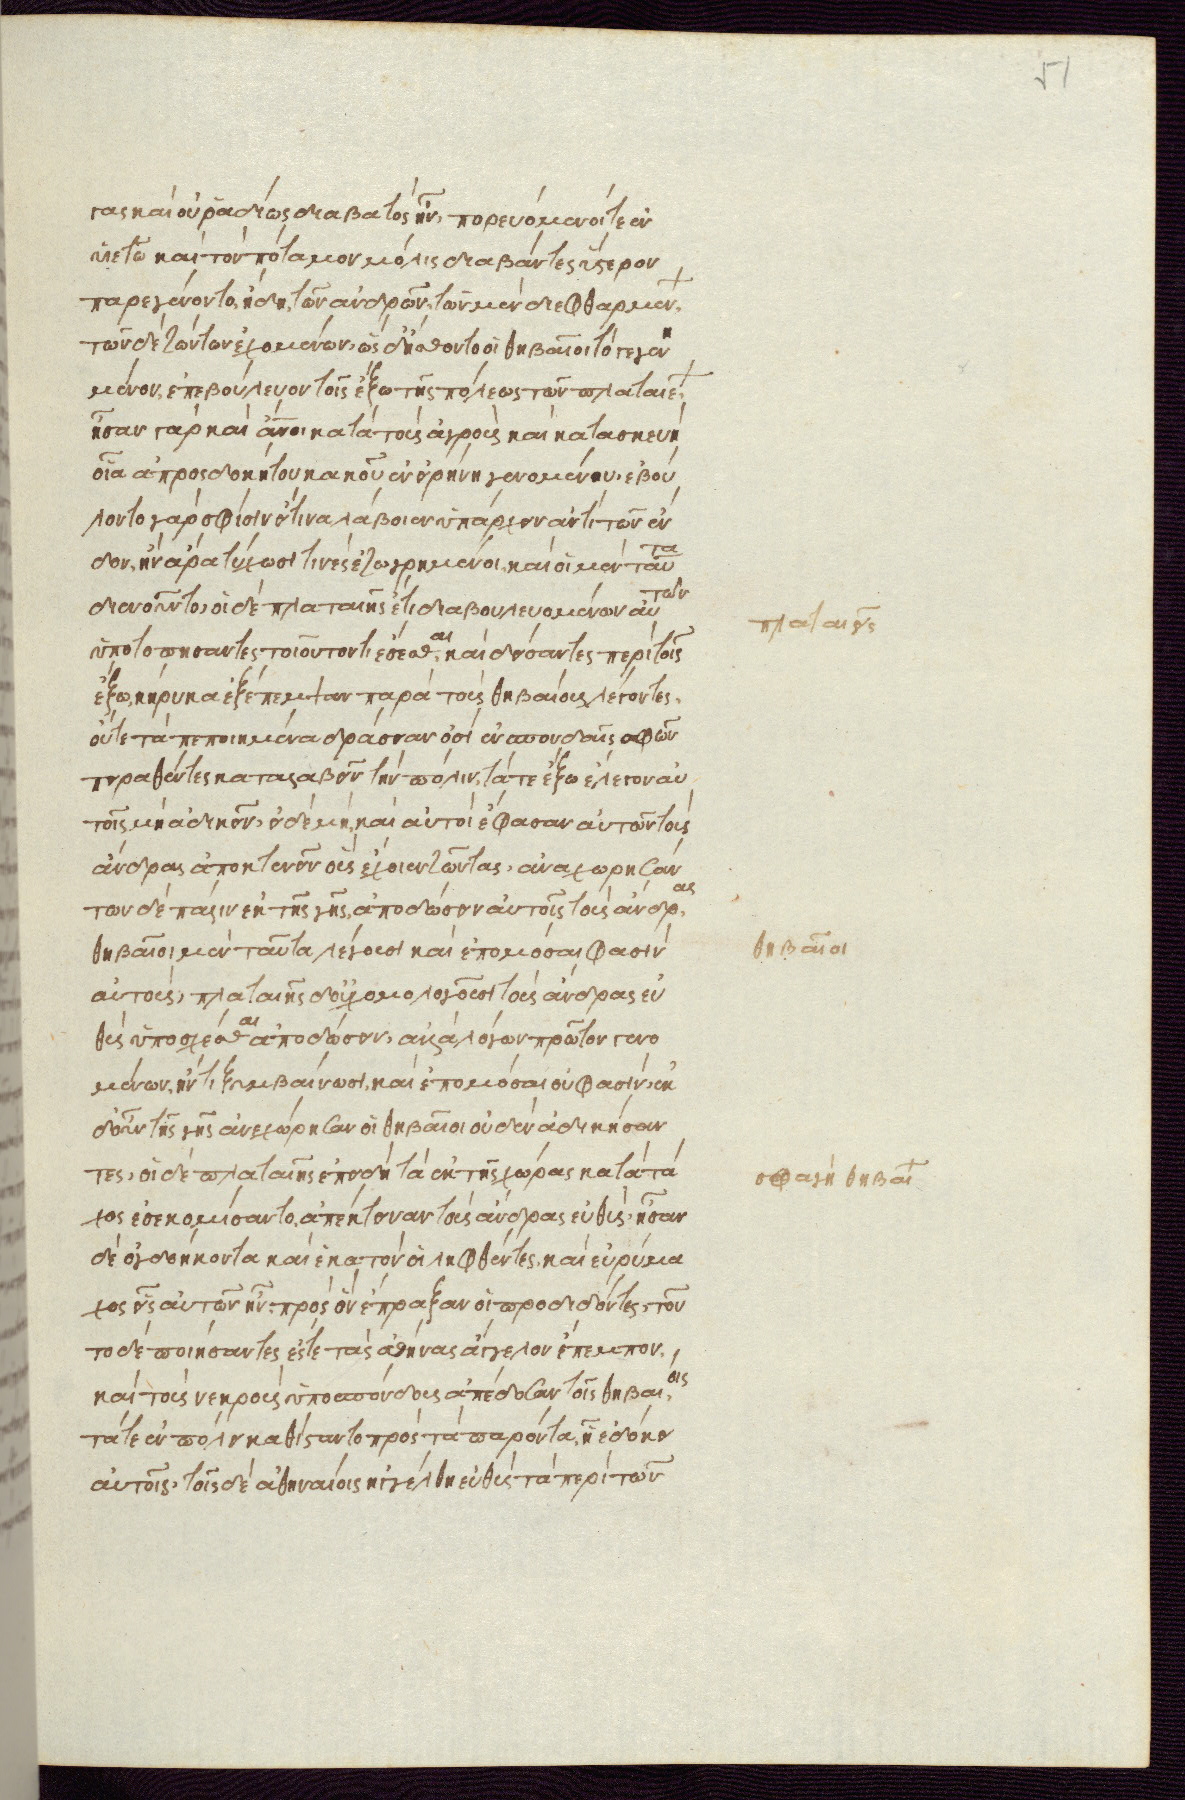 51
γας καὶ οὐ ῥαδίως διαβατὸς ἦν, πορευόμενοί τε ἐν
ὑετῷ καὶ τὸν πόταμον μόλις διαβάντες ὕστερον
παρεγένοντο, ἤδη τῶν ἀνδρῶν, τῶν μὲν διεφθαρμέν
τῶν δὲ ζώντων ἐχομένων, ὡς δ' ἤσθοντο οἱ θηβαῖοι τὸ γεγεν
ημένον, ἐπεβούλευον τοῖς ἔξω τῆς πόλεως τῶν πλαταιέ
ἦσαν γὰρ καὶ ἄνοι κατὰ τοὺς ἀγροὺς καὶ κατασκευὴ
οἷα ἀπροσδοκήτου κακοῦ ἐν εἰρήνῃ γενομένου, ἐβού
λοντο γὰρ σφίσιν εἴ τινα λάβοιεν ὑπάρχειν ἀντὶ τῶν ἔν
δον, ἢν ἄρα τύχωσί τινες ἐζωγρημένοι, καὶ οἱ μὲν ταῦτα
διενοοῦντο, οἱ δὲ πλαταιῆς ἔτι διαβουλευομένων αὐτῶν
ὑποτοπήσαντες τοιοῦτον τι ἔσεσθαι καὶ δείσαντες περὶ τοῖς
ἔξω, κήρυκα ἐξέπεμψαν παρὰ τοὺς θηβαίους λέγοντες,
οὔτε τὰ πεποιημένα δράσειαν ὁσί ἐν σπονδαῖς σφῶν
πειραθέντες καταλαβεῖν τὴν πόλιν, τά τε ἔξω ἔλεγον αὐ
τοῖς μὴ ἀδικεῖν, εἰ δὲ μὴ, καὶ αὐτοὶ ἔφασαν αὐτῶν τοὺς
ἄνδρας ἀποκτενεῖν οὓς ἔχοιεν ζῶντας, ἀναχωρησάν
των δὲ πάλιν ἐκ τῆς γῆς, ἀποδώσειν αὐτοῖς τοὺς ἄνδρας
θηβαῖοι μὲν ταῦτα λέγουσι καὶ ἐπομόσαι φασὶν
αὐτούς, πλαταιῆς δ' οὐχ ὁμολογοῦσι τοὺς ἄνδρας εὐ
θὺς ὑποσχέσθαι ἀποδώσειν, ἀλλὰ λόγων πρῶτον γενο
μένων, ἤν τι ξυμβαίνωσι, καὶ ἐπομόσαι οὔ φασιν, ἐκ
δ' οὖν τῆς γῆς ἀνεχώρησαν οἱ θηβαῖοι οὐδὲν ἀδικήσαν
τες, οἱ δὲ πλαταιῆς ἐπειδὴ τὰ ἐκ τῆς χώρας κατὰ τά
χος ἐσεκομίσαντο, ἀπέκτειναν τοὺς ἄνδρας εὐθὺς, ἦσαν
δὲ ὀγδοήκοντα καὶ ἑκατὸν οἱ ληφθέντες, καὶ εὐρύμα
χος εἷς αὐτῶν ἦν, πρὸς ὃν ἔπραξαν οἱ προδιδόντες, τοῦ
το δὲ ποιήσαντες ἔς τε τὰς ἀθήνας ἄγγελον ἔπεμπον,
καὶ τοὺς νεκροὺς ὑποσπόνδους ἀπέδοσαν τοῖς θηβαίοις
τά τε ἐν πόλει καθίσταντο πρὸς τὰ παρόντα, ᾗ ἐδόκει
αὐτοῖς, τοῖς δὲ ἀθηναίοις ἠγγέλθη εὐθὺς τὰ περὶ τῶν
πλαταιεῖς
θηβαῖοι
σφαγὴ θηβαί